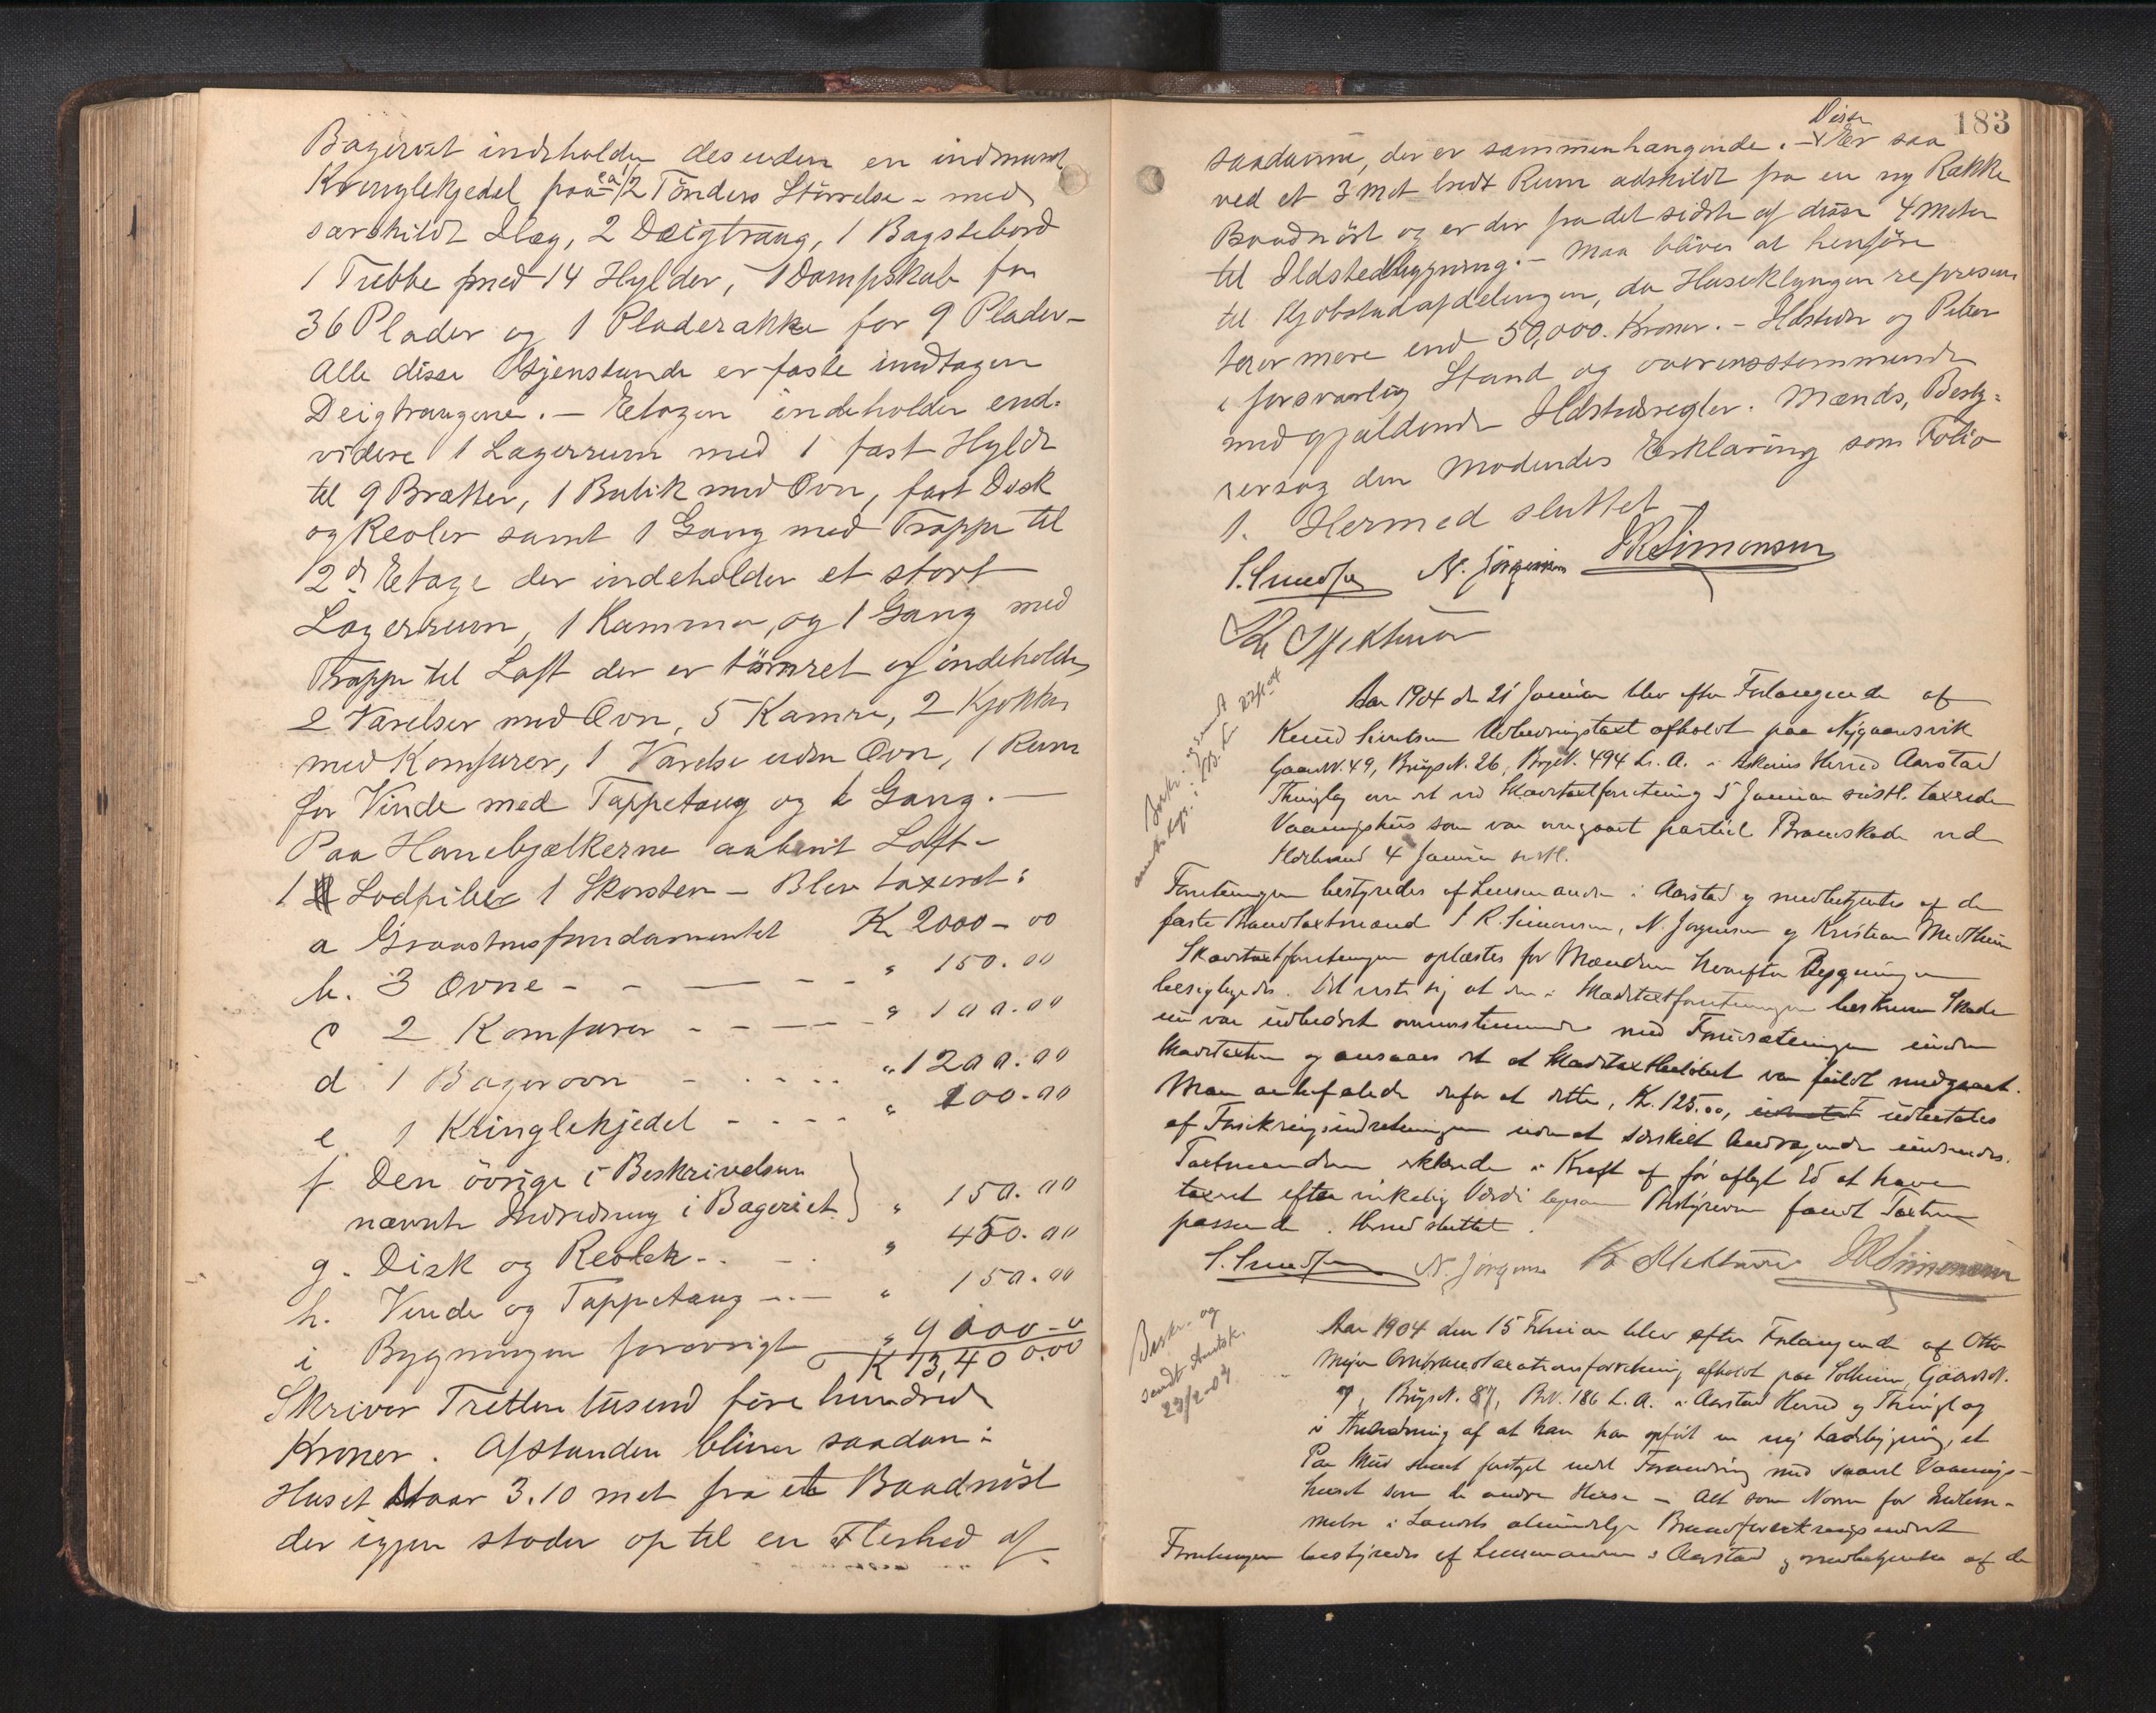 Bageriet indeholder desuden en indmuret
Kringlekjedel paa ca 1/2 Tönders Störrelse - med
særskildt Ilæg, 2 Deigtraug, 1 Bagstebord
1 Trebbe med 14 Hylder, 1 Dampskab for
36 Plader og 1 Pladerække for 9 Plader -
Alle disse Gjenstande er faste undtagen
Deigtraugene. - Etagen indeholder end-
videre 1 Lagerrum med 1 fast Hylde
til 9 Brætter, 1 Butik med Ovn, fast Disk
og Reoler samt 1 Gang med Trappe til
2den Etage der indeholder et stort
Lagerrum, 1 Kammer, og 1 Gang med
Trappe til Loft der er tömret og indeholder
2 Værelser med Ovn, 5 Kamre, 2 Kjøkken
med Komfurer, 1 Værelse uden Ovn, 1 Rum
for Vinde med Tappetaug og 1 Gang. -
Paa Hanebjælkerne aabent Loft -
1 Lodpibe 1 Skorsten - Blev taxeret:
a Graastensfundamentet K 2000 - 00
b. 3 Ovne - - - - - " 150.00
c 2 Komfurer - - - - - " 100.00
d 1 Bagerovn - . . . . " 1200.00
e 1 Kringlekjedel - - - - " 200.00
f. Den övrige i Beskrivelsen
nævnte Indredning i Bageriet } " 150.00
g. Disk og Reoler - . - . " 450.00
h. Vinde og Tappetaug - . - " 150.00
i Bygningen forøvrigt " 9000 - 0
K 13,400.00
Skriver Tretten tusend fire hundrede
Kroner. Afstanden bliver saadan:
Huset staar 3.10 met fra et Baadnöst
der igjen støder op til en Flerhed af
183
saadanne, der er sammenhængende. - Disse er saa
ved et 3 met bredt Rum adskildt fra en ny Række
Baadnöst og er der fra det sidste af disse 4 meter
til Ildstedbygning. - Maa blive at henføre
til Kjøbstadafdelingen, da Huseklyngen repræsen
terer mere end 50,000. Kroner. - Ildsteder og Piber
i forsvarlig Stand og overensstemmende
med gjældende Ildstedsregler. Mænds, Besty-
rersog den Mødendes Erklæring som Folio
1. Hermed sluttet -
N. Jörgensen JR Simonsen
Aar 1904 den 21 Januar blev efter Forlangende af
Knud Udbedringstaxt afholdt paa Nygaardsvik
Gaards N. 49, Brugs N. 26, Br N. 494 L. A. i Askøens Herred Aarstad
Thinglag over det ved Skadetaxtforretning 5 Januar sidstl. taxerede
Vaaningshus som var overgaaet partiel Brandskade ved
Ildebrand 4 Januar sidstl.
Forretningen bestyredes af Lensmanden i Aarstad og medbetjentes af de
faste Brandtaxtmænd J R. Simonsen, N. Jørgensen og Kristian
Skadetaxtforretningen oplæstes for Mændene hvorefter Bygningen
besigtigedes. Det viste sig at den i Skadetaxtforretningen beskrevne Skade
nu var udbedret overensstemmende med Forudsætningen under
Skadetaxten og ansaaes det at Skadetaxtbeløbet var fuldt medgaaet.
Man anbefalede derfor at dette, Kr. 125.00, udbetales
af Forsikringsindretningen uden at særskilt Andragende indsendes.
Taxtmændene erklærede i Kraft af før aflagt Ed at have
taxeret efter virkelig Værdi Bestyreren fandt Taxten
passende. Hermed sluttet.
N. Jørgensen JR Simonsen
Beskr. og
sendt Amtsk.
23/2-04
Aar 1904 den 15 Februar blev efter Forlangende af Otto
Meyer Ombrandtaxationsforretning afholdt paa Solheim, Gaards N.
7, Brugs N. 87, Br N. 186 L. A. i Aarstad Herred og Thinglag
i Anledning af at han har opført en ny Ladebygning, et
Par Skur samt foretaget endel Forandring med saavel Vaanings-
huset som de andre Huse - Alt som Norm for Indlem-
melse i Landets almindelige Brandforsikringsindret
Forretningen bestyredes af Lensmanden i Aarstad og medbetjentes af de